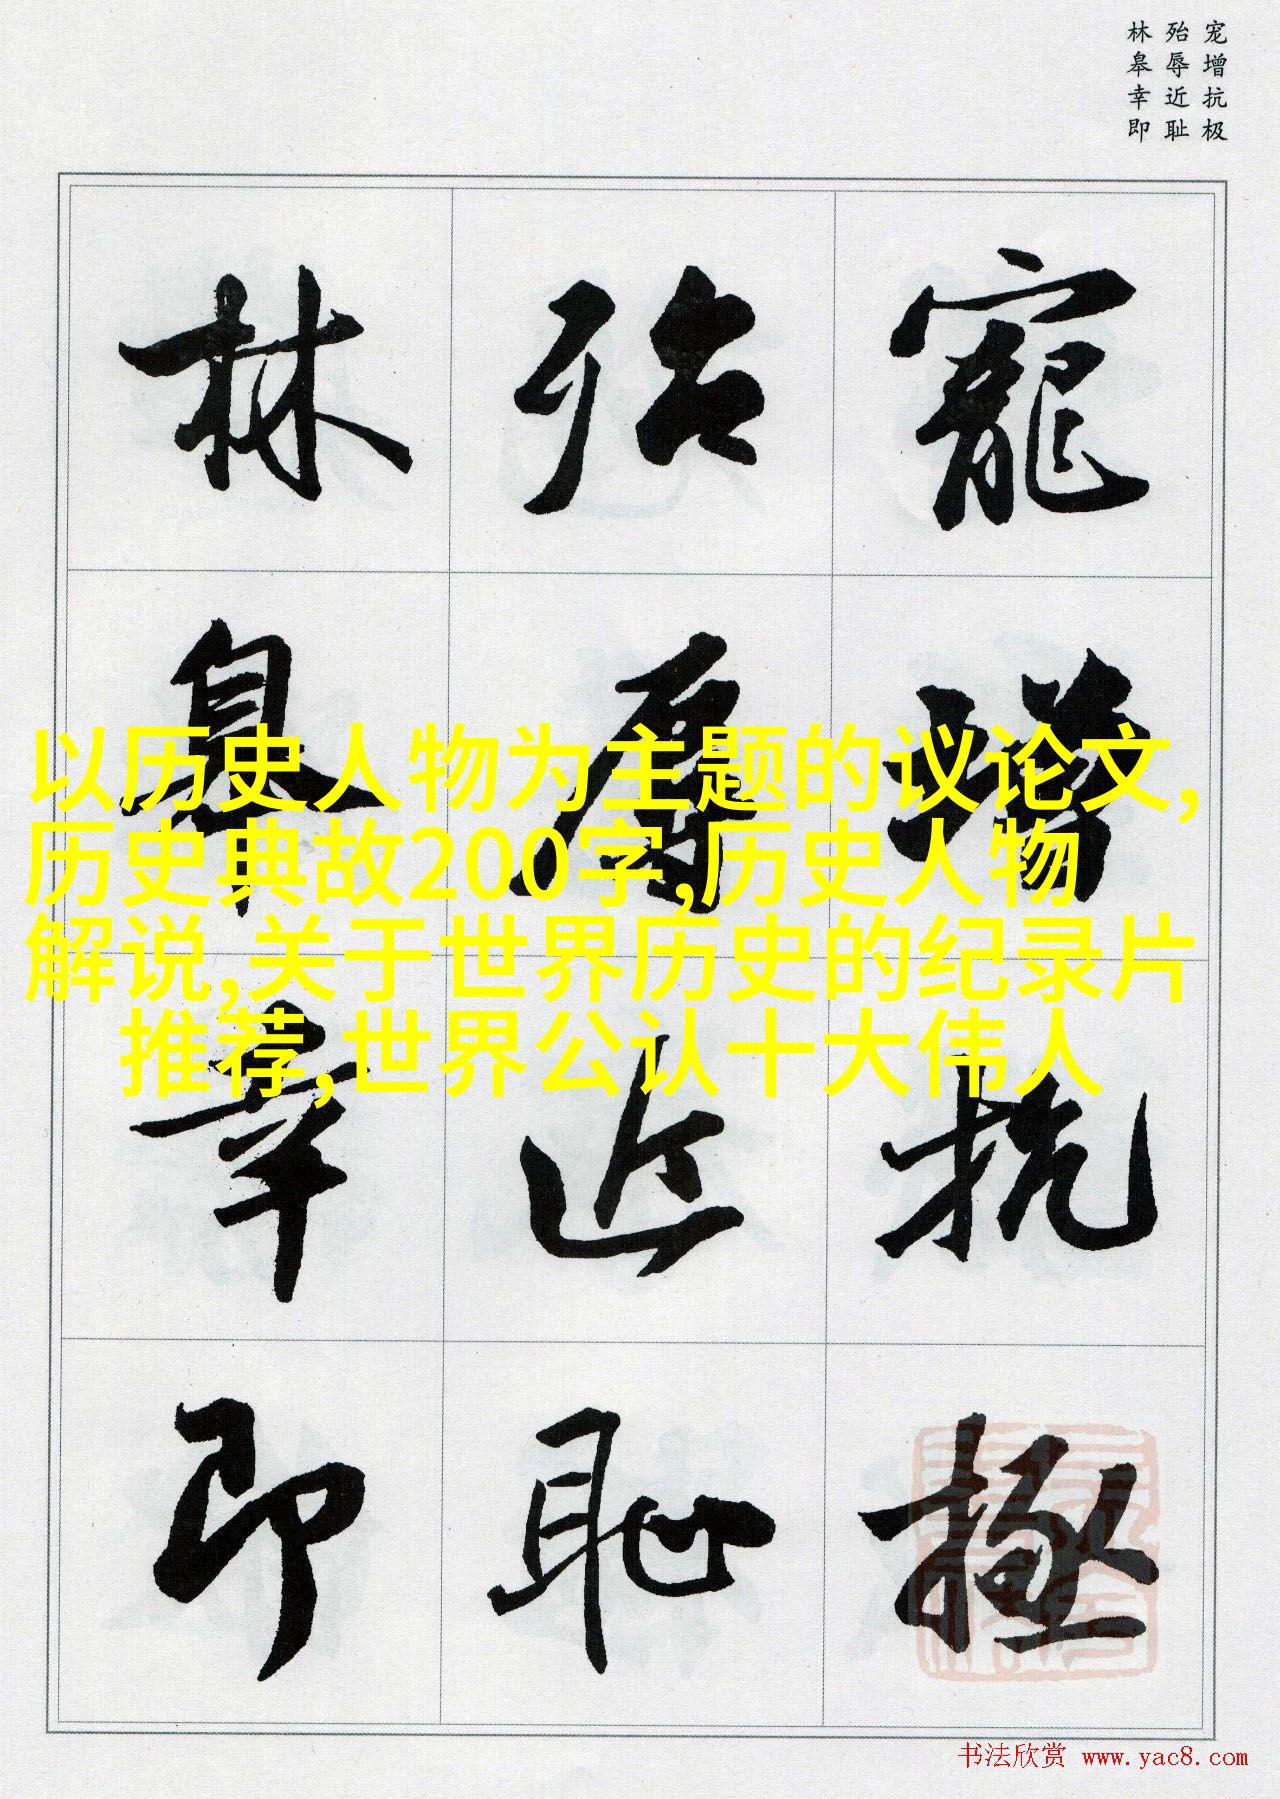 宠增抗极
殆辱近耻
林皋幸即
寵增抗極
殆辱近恥
林皋幸即
以历史人物为主题的议论文,
历史典故200字,历史人物
解说,关于世界历史的纪录片
推荐,世界公认十大伟人
书法欣赏 www.yac8.com